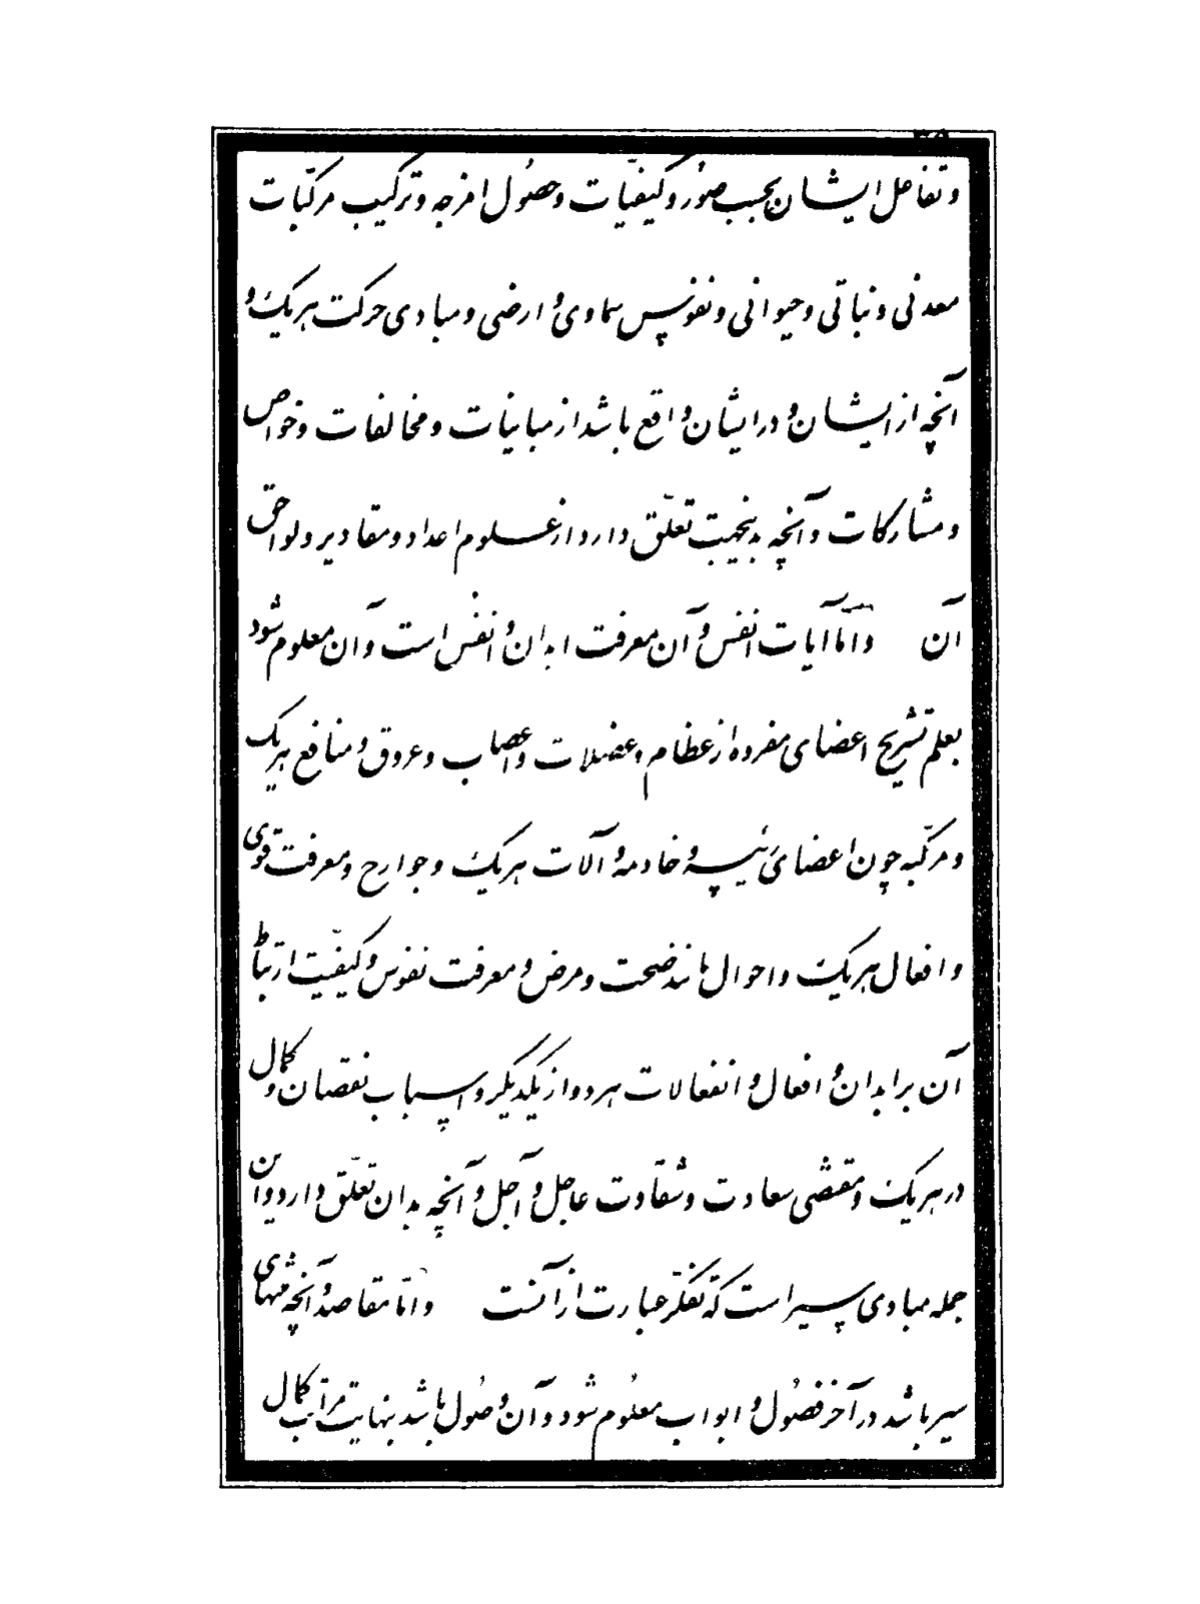 و تفاعل ایشان بحسب صُوَر و کیفیّات و حصُول امزجه و ترکیب مرکّبات
معدنی و نباتی و حیوانی و نفوس سماوی و ارضی و مبادی حرکت هریک و
آنچه از ایشان و در ایشان واقع باشد از مباینات و مخالفات و خواص
و مشارکات و آنچه بدینجهت تعلّق دارد از علوم اعداد و مقادیر و لواحق
آن و امّا آیات انفس و آن معرفت ابدان و انفُس است و آن معلوم شود
بعلم تشریح اعضای مفرده از عظام و عضلات و اعصاب و عروق و منافع هریک
و مرکّبه چون اعضای رئیسه و خادمه و آلات هریک و جوارح و معرفت قوی
و افعال هریک و احوال مانند صحت و مرض و معرفت نفوس و کیفیّت ارتباط
آن بر ابدان و افعال و انفعالات هردو از یکدیگر و اسباب نقصان و کمال
در هریک و مقتضی سعادت و شقاوت عاجل و آجل و آنچه بدان تعلّق دارد و این
جمله مبادی سیر است که تفکّر عبارت از آنست و امّا مقاصد و آنچه منتهای
سیر باشد در آخر فصُول و ابواب معلُوم شود و آن وصُول باشد بنهایت مراتب کمال